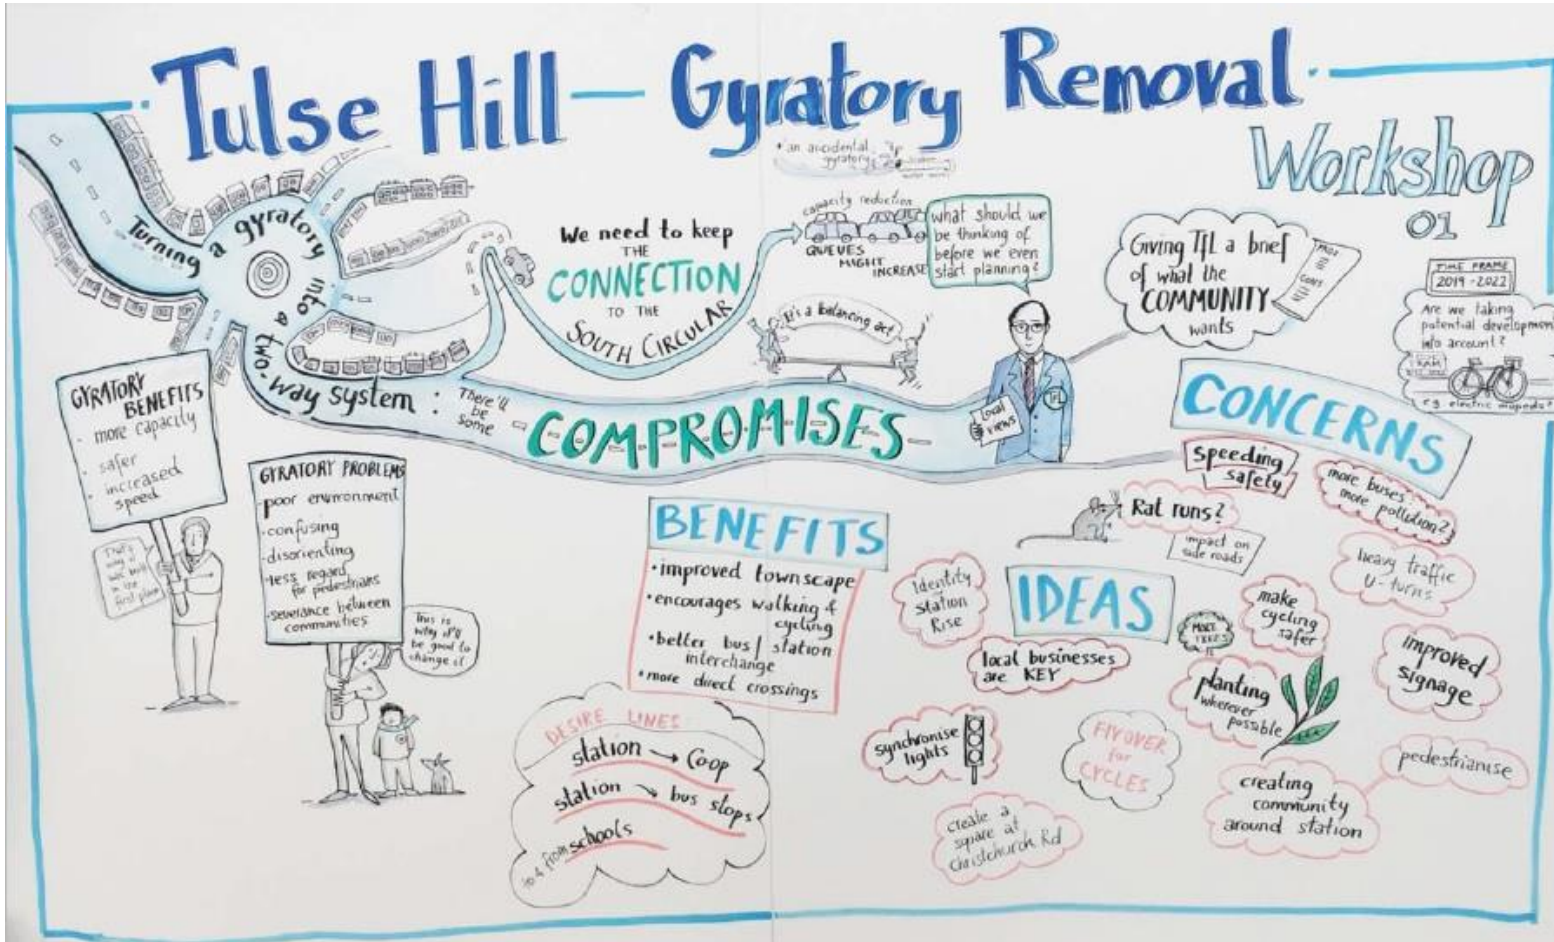 Tulse Hill — Gyratory Removal
Workshop
01
• an accidental
gyratory
Turning a gyratory into a two-way system :
There'll
be
some
COMPROMISES
We need to keep
THE
CONNECTION
TO THE
SOUTH CIRCULAR
capacity reduction
QUEUES
MIGHT
INCREASE
It's a balancing act
what should we
be thinking of
before we even
start planning?
Local
views
TfL
Giving TfL a brief
of what the
COMMUNITY
wants
TIME FRAME
2019-2022
Are we taking
potential development
into account?
TRAM
e.g. electric mopeds?
GYRATORY
BENEFITS
• more capacity
• safer
• increased
speed
That's
why it
was built
in the
first place
GYRATORY PROBLEMS
• poor environment
• confusing
• disorienting
• less regard
for pedestrians
• severance between
communities
This is
why it'll
be good to
change it
BENEFITS
• improved townscape
• encourages walking &
cycling
• better bus/station
interchange
• more direct crossings
DESIRE LINES
station → Co-op
station → bus stops
to & from schools
CONCERNS
Speeding
safety
more buses:
more pollution?
Rat runs?
impact on
side roads
heavy traffic
U-turns
IDEAS
Identity
—
station
Rise
local businesses
are KEY
MORE
TREES
make
cycling
safer
planting
wherever
possible
improved
signage
synchronise
lights
FLYOVER
for
CYCLES
pedestrianise
creating
community
around station
create a
square at
Christchurch Rd